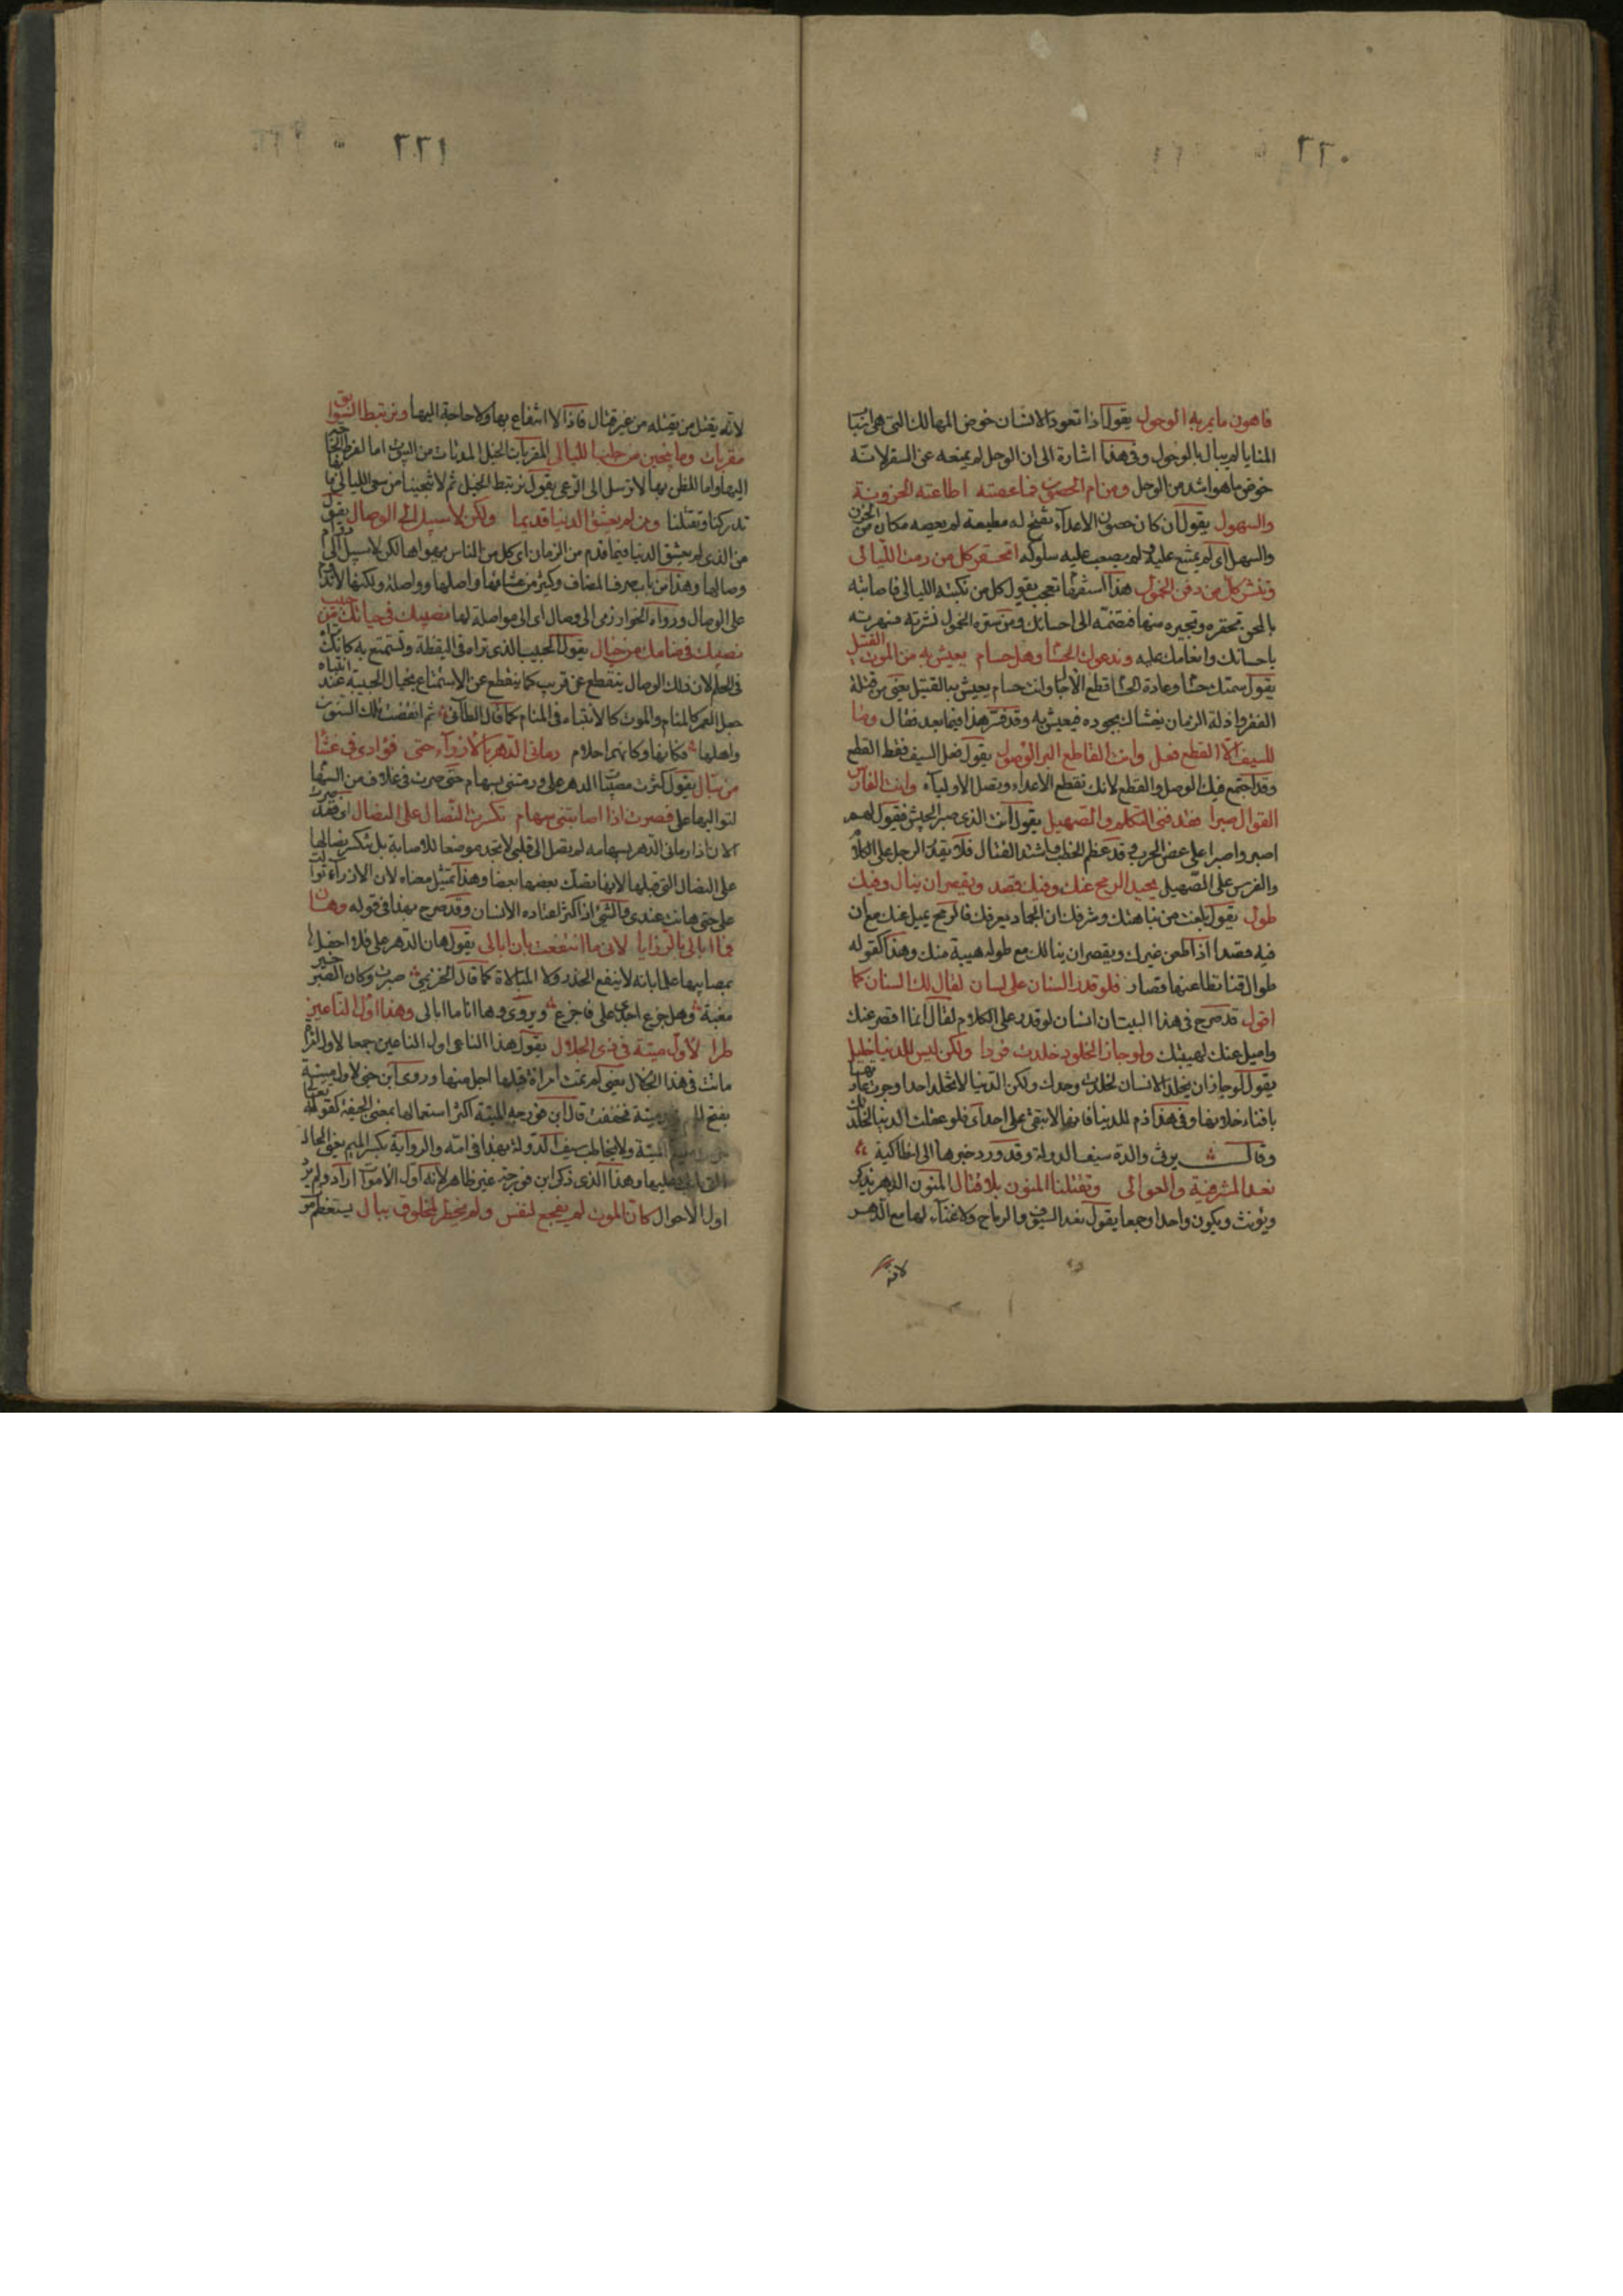 ٢٢٠
فاهون ما يمر به الوحول يقول اذا تعود الانسان خوض المهالك التى هى
المنايا لم يبال بالوحول وفى هذا اشارة الى ان الوحل لم يمنعه عن السفر لانه
خوض ما هو اشد من الوحل ومن امر الحصون فما عصته اطاعته الحزونة
والسهول يقول ان كان حصون الاعداء تفتح له مطيعة لم يعصه مكان من الحزن
والسهل اى لم يمتنع عليه ولم يصعب عليه سلوكه اتحقر كل من رمت الليالى
وتنشر كل من دفن الخمول هذا استفهام تعجب يقول كل من نكبته الليالى فاصابته
بالمحن تخفره وتجيره منها فتضمه الى احسانك ومن ستره الخمول نشرته فشهرته
باحسانك وانعامك عليه وندعوك الحسام وهل حسام يعيش به من الموت القتيل
يقول سمتك حساما وعادة الحسام قطع الآجال وانت حسام يعيش به القتيل يعنى من قتله
الفقر واذلة الزمان يغشاك بجوده فيعيش به وقد فسر هذا فيما بعد فقال وما
للسيف الا القطع فعل وانت القاطع البر الوصول يقول فعل السيف فقط القطع
وقد اجتمع فيك الوصل والقطع لانك تقطع الاعداء وتصل الاولياء وانت الفارس
القوال صبرا فقد فنى التكلم والصهيل يقول انت الذى صبر الجيش فتقول لهم
اصبروا صبرا على عض الحرب وقد عظم الخطب واشتد القتال فلا يقدر الرجل على الكلام
والفرس على الصهيل يحيد الرمح عنك وفيك قصد ويقصر ان ينال وفيك
طول يقول بلغت من نباهتك وشرفك ان الجماد يعرفك فالرمح يميل عنك مع ان
فيه قصدا اذا طعن غيرك ويقصر ان ينالك مع طوله هيبة منك وهذا كقوله
طوال قنا تطاعنها قصار فلو قدر السنان على لسان لقال لك السنان كما
اقول قد صرح فى هذا البيت ان السنان لو قدر على الكلام لقال انما اقصر عنك
واميل عنك لهيبتك ولو جاز الخلود خلدت فردا ولكن ليس للدنيا خليل
يقول لو جاز ان يخلد الانسان لخلدت وحدك ولكن الدنيا لا تخلد احدا وجرت عادتها
بافناء خلانها وفى هذا ذم للدنيا فانها لا تبقى على احد اى فلو عقلت الدنيا لخلدتك
وقال يرثى والدة سيف الدولة وقد ورد خبرها الى انطاكية
نعد المشرفية والعوالى وتقتلنا المنون بلا قتال المنون الدهر يذكر
ويؤنث ويكون واحدا وجمعا يقول نعد السيوف والرماح ولا غناء لها مع الدهر
لانه
٢٢١
لانه يقتل من يقتله من غير قتال فاذا لا انتفاع بها ولا حاجة اليها ونرتبط السوابق
مقربات وما ينجين من خبب الليالى المقربات الخيل المدنات من البيوت اما لفرط الحاجة
اليها واما للظن بها لا ترسل الى الرعى يقول نرتبط الخيل ثم لا تنجينا من سعى الليالى فانها
تدركنا وتقتلنا ومن لم يعشق الدنيا قديما ولكن لا سبيل الى الوصال يقول
من الذى لم يعشق الدنيا فيما قدم من الزمان اى كل من الناس يهواها لكن لا سبيل الى دوام
وصالها وهذا من باب حذف المضاف وكثير من عشاقها واصلها وواصلته ولكنها لا تدوم
على الوصال ورواه الخوارزمى الى وصال اى الى مواصلة لها نصيبك فى حياتك من حبيب
نصيبك فى منامك من خيال يقول الحبيب الذى تراه فى اليقظة وتستمتع به كانك تراه
فى الحلم لان ذلك الوصال ينقطع عن قريب كما ينقطع عن الاستمتاع بخيال الحبيبة عند انتباه
جعل العمر كالمنام والموت كالانتباه فى المنام كما قال الطائى ثم انقضت تلك السنون
واهلها فكانها وكانهم احلام رمانى الدهر بالارزاء حتى فؤادى فى غشاء
من نبال يقول كثرت مصيبات الدهر على ورمتنى بسهام حتى صرت فى غلاف من السهام
لتواليها على فصرت اذا اصابتنى سهام تكسرت النصال على النصال اى فصرت
الان اذا رمانى الدهر بسهامه لم تصل الى قلبى لا تجد موضعا للاصابة بل تتكسر نصالها
على النصال التى قبلها لانها تصك بعضها بعضا وهذا تمثيل معناه لان الارزاء توالت
على حتى هانت عندى والشئ اذا كثر اعتاده الانسان وقد صرح بهذا فى قوله وهان
فما ابالى بالرزايا لانى ما انتفعت بان ابالى يقول هان الدهر على فلا احفل
بمصايبها علما بانه لا ينفع الحذر ولا المبالاة كما قال الخزيمى صبرت وكان الصبر خير
مغبة وهل جزع اجدى على فاجزع ويروى وها انا ما ابالى وهذا اول الناعين
طرا لاول ميتة فى ذى الجلال يقول هذا الناعى اول الناعين جمعا لاول امراة
ماتت فى هذا الجلال يعنى لم تمت امراة قبلها اجل منها وروى ابن جنى لاول ميتة
بفتح الميم ميتة فخففت قال ابن فورجه الميتة اكثر استعمالها بمعنى الجيفة كقوله تعالى
الميتة ولا يخاطب سيف الدولة بهذا فى امه والرواية بكسر الميم يعنى الحال
عليها وهذا الذى ذكر ابن فورجة غير ظاهر لانه اول الاموات اراد ولم يرد
اول الاحوال كان الموت لم يفجع لنفس ولم يخطر لمخلوق ببال يستعظم امر